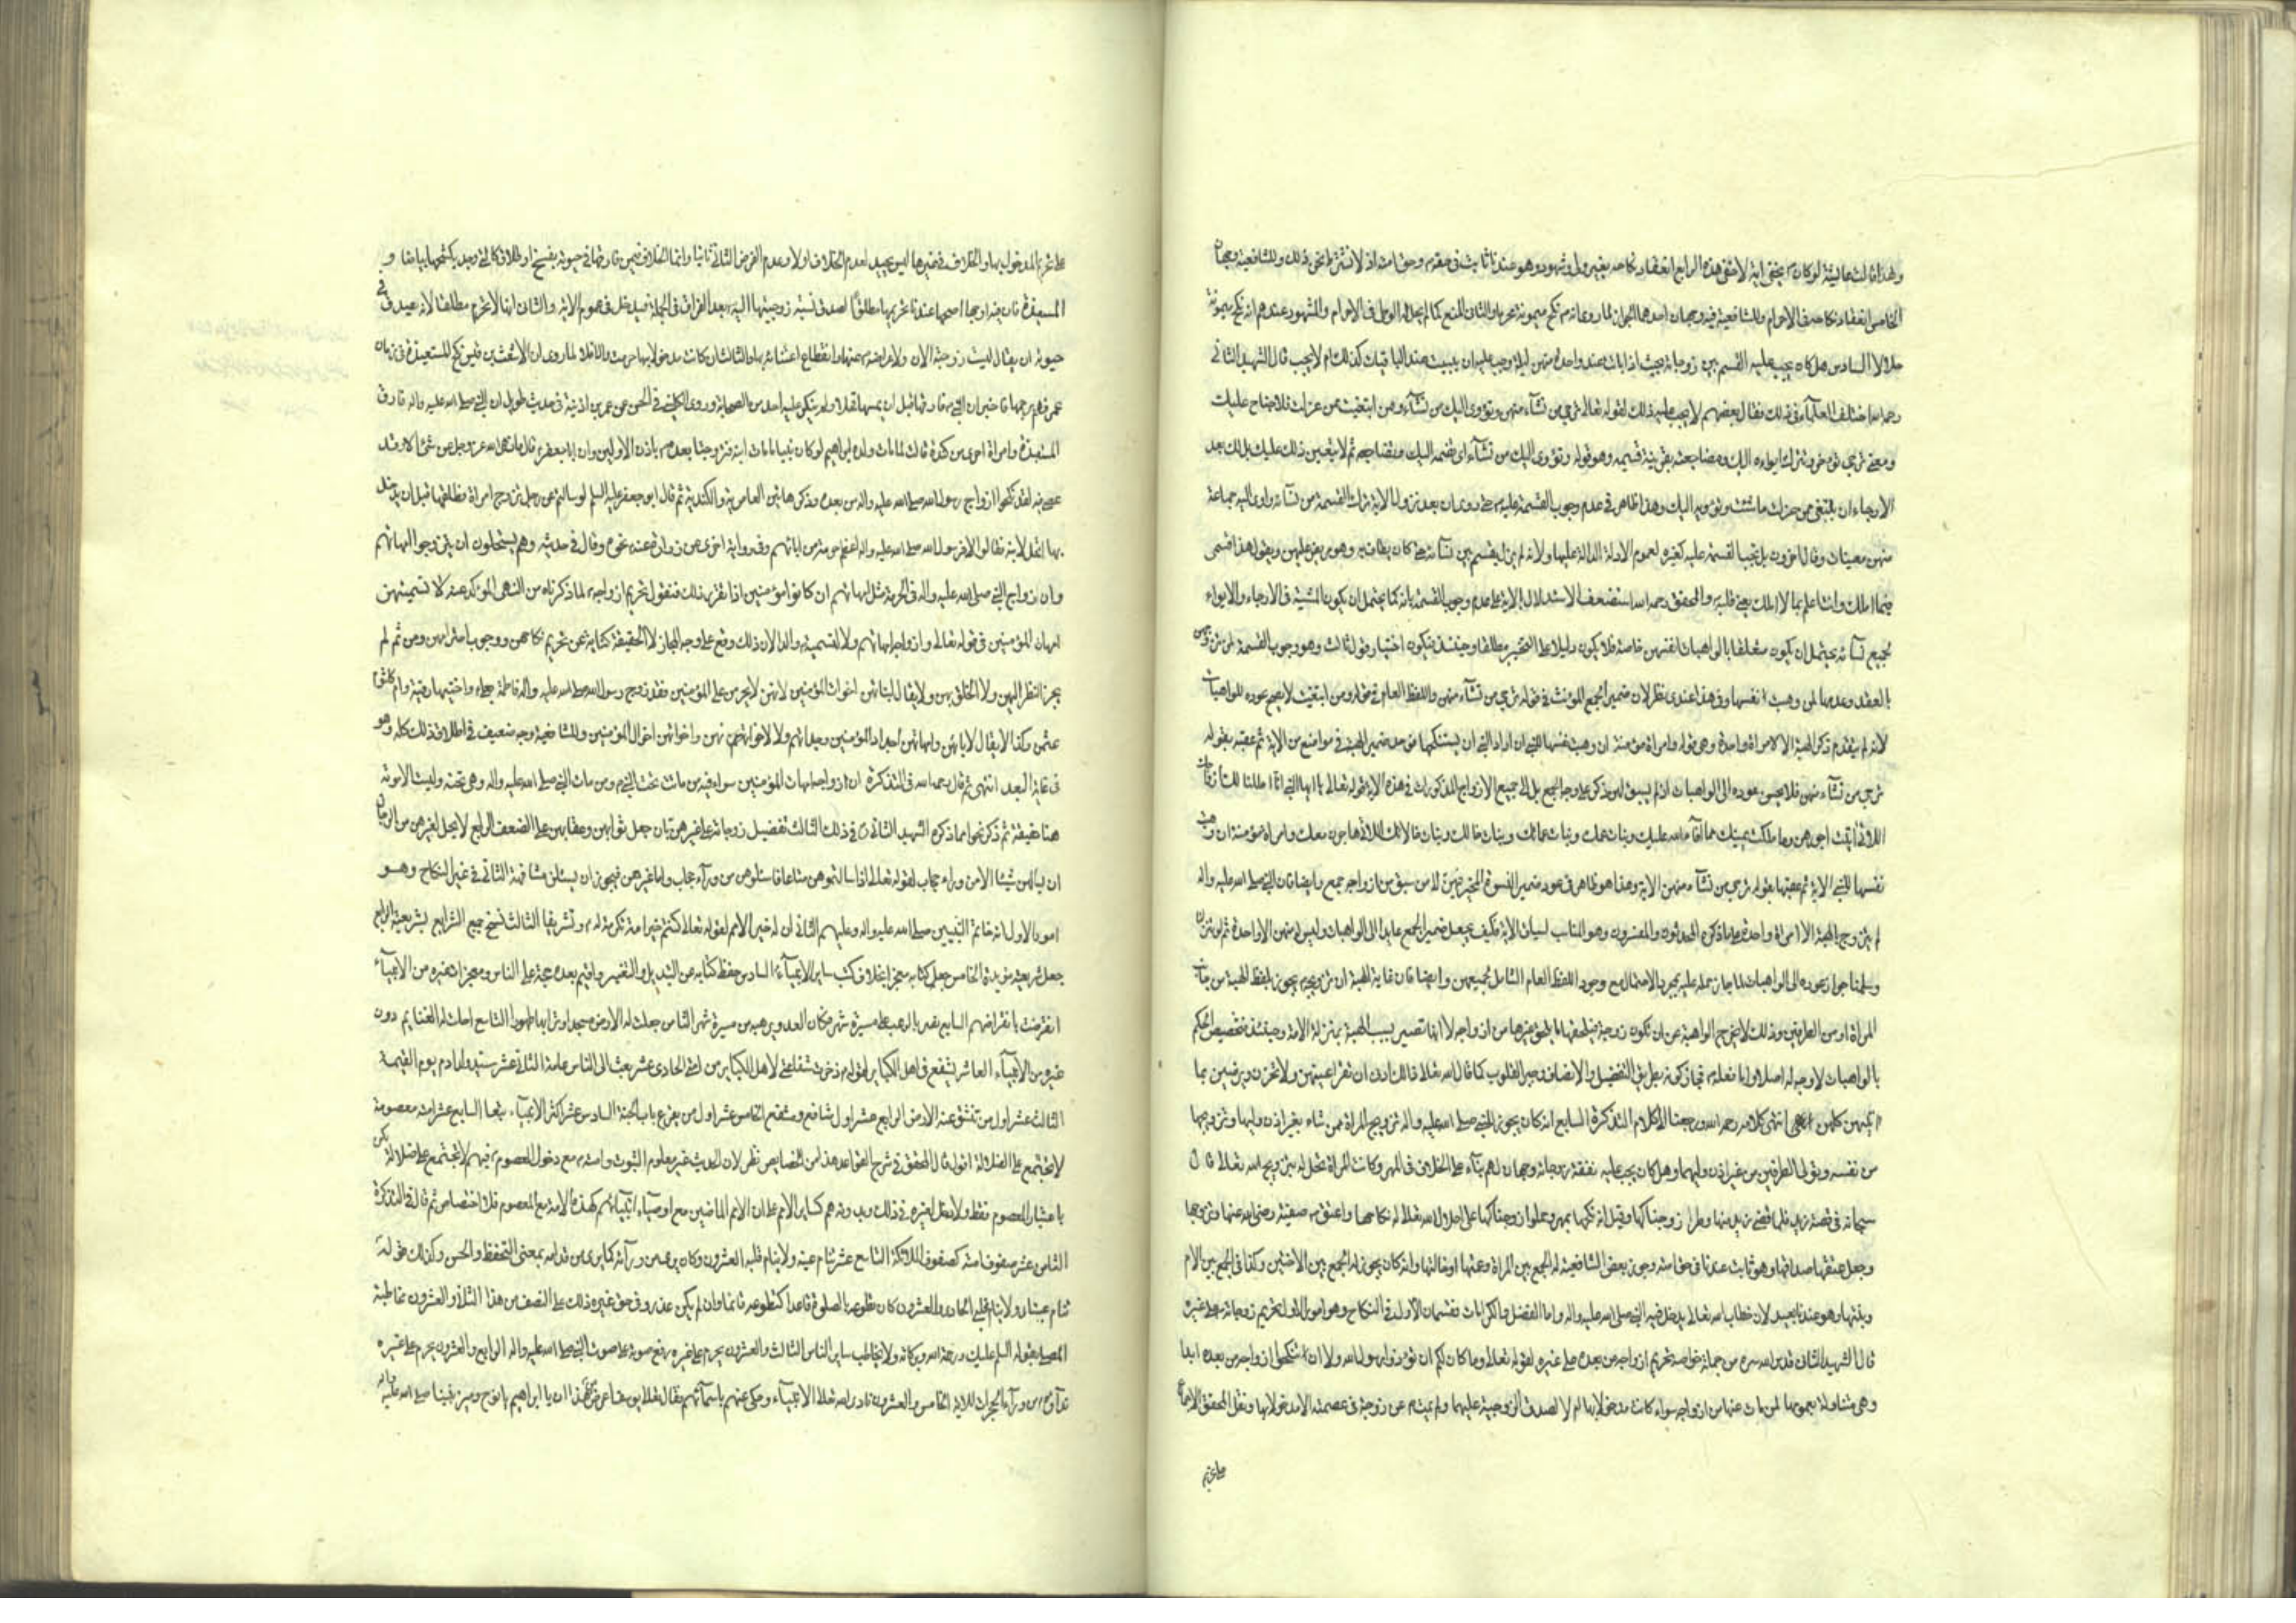 ولهذا قالت عايشة لو كان يخفى اية لاخفى هذه الرابع انعقاد نكاحه بغير ولي وشهود وهو عندنا ثابت في حقه وحق امته اذ لا نشترط نحن ذلك وللشافعية وجهان
الخامس انعقاد نكاحه في الاحرام وللشافعية فيه وجهان احدهما الجواز لما روى انه نكح ميمونة محرما والثاني المنع كما لم يحل له الوطي في الاحرام والمشهور عندهم انه نكح ميمونة
حلالا السادس هل كان يجب عليه القسم بين زوجاته بحيث اذا بات عند واحدة منهن ليلة وجب عليه ان يبيت عند الباقيات كذلك ام لا يجب قال الشهيد الثاني
رحمه الله اختلف العلماء في ذلك فقال بعضهم لا يجب عليه ذلك لقوله تعالى ترجي من تشاء منهن وتؤوى اليك من تشاء ومن ابتغيت ممن عزلت فلا جناح عليك
ومعنى ترجي تؤخر وتترك ايواءه اليك ومضاجعته بقرينة قسيمه وهو قوله وتؤوى اليك من تشاء اى تضمه اليك وتضاجعه ثم لا يتعين ذلك عليك بل لك بعد
الارجاء ان تبتغي ممن عزلت ما شئت وتؤويه اليك وهذا ظاهر في عدم وجوب القسمة عليه حتى روى ان بعد نزول الاية ترك القسمة من نسائه واوى اليه جماعة
منهن معينات وقال اخرون بل تجب القسمة عليه كغيره لعموم الادلة الدالة عليها ولانه لم يزل يقسم بين نسائه حتى كان يطاف به وهو مريض عليهن ويقول هذا قسمي
فيما املك وانت اعلم بما لا املك يعني قلبه والمحقق رحمه الله استضعف الاستدلال بالاية على عدم وجوب القسمة بانه كما يحتمل ان يكون المشية في الارجاء والايواء
لجميع نسائه يحتمل ان يكون متعلقا بالواهبات انفسهن خاصة فلا يكون دليلا على التخيير مطلقا وحينئذ فيكون اختيار قول ثالث وهو وجوب القسمة لمن تزوجهن
بالعقد وعدمها لمن وهبت نفسها وفي هذا عندي نظر لان ضمير الجمع المؤنث في قوله ترجي من تشاء منهن واللفظ العام في قوله ومن ابتغيت لا يصح عوده للواهبات
لانه لم يتقدم ذكر الهبة الا لامراة واحدة وهي قوله وامراة مؤمنة ان وهبت نفسها للنبي ان اراد النبي ان يستنكحها فوحد ضمير الهبة في مواضع من الاية ثم عقبه بقوله
ترجي من تشاء منهن فلا يحسن عوده الى الواهبات اذ لم يسبق لهن ذكر على وجه الجمع بل الى جميع الازواج المذكورات في هذه الاية قوله تعالى يا ايها النبي انا احللنا لك ازواجك
اللاتي اتيت اجورهن وما ملكت يمينك مما افاء الله عليك وبنات عمك وبنات عماتك وبنات خالك وبنات خالاتك اللاتي هاجرن معك وامراة مؤمنة ان وهبت
نفسها للنبي الاية ثم عقبها بقوله ترجي من تشاء منهن الاية وهذا هو ظاهر في عود ضمير النسوة المخير فيهن لمن سبق من ازواجه جمع وايضا فان النبي صلى الله عليه واله
لم يتزوج بالهبة الا امراة واحدة على ما ذكره المحدثون والمفسرون وهو المناسب لسياق الاية فكيف يجعل ضمير الجمع عايدا الى الواهبات وليس له منهن الا واحدة ثم لو تنزلنا
وسلمنا جواز عوده الى الواهبات لما جاز حمله عليه بمجرد الاحتمال مع وجود اللفظ العام الشامل لجميعهن وايضا فان غاية الهبة ان تزويجه يجوز بلفظ الهبة من جانب
المراة او من الطرفين وذلك لا يخرج الواهبة عن ان تكون زوجة فيلحقها ما يلحق غيرها من ازواجه لا انها تصير بسبب الهبة بمنزلة الامة وحينئذ فتخصيص الحكم
بالواهبات لا وجه له اصلا واما فعله فجاز كونه بطريق التفضيل والانصاف وجبر القلوب كما قال الله تعالى ذلك ادنى ان تقر اعينهن ولا يحزن ويرضين بما
اتيتهن كلهن انتهى كلامه رحمه الله ورجعنا الى كلام التذكرة السابع انه كان يجوز للنبي صلى الله عليه واله تزويج المراة ممن شاء بغير اذن وليها وتزويجها
من نفسه وتولى الطرفين من غير اذن وليها وهل كان يجب عليه نفقة زوجاته وجهان لهم بناء على الخلاف في المهر وكانت المراة تحل له بتزويج الله تعالى قال
سبحانه في قصة زيد فلما قضى زيد منها وطرا زوجناكها وقيل انه نكحها بمهر وحملوا زوجناكها على احلال الله تعالى له نكاحها واعتق صفية رضى الله عنها وتزوجها
وجعل عتقها صداقها وهو ثابت عندنا في حق امته وجوز بعض الشافعية له الجمع بين المراة وعمتها او خالتها وانه كان يجوز له الجمع بين الاختين وكذا في الجمع بين الام
وبنتها وهو عندنا بعيد لان خطاب الله تعالى يدخل فيه النبي صلى الله عليه واله واما الفضل والكرامات فقسمان الاول في النكاح وهو امور الاول تحريم زوجاته على غيره
قال الشهيد الثاني قدس الله سره من جملة خواصه تحريم ازواجه من بعده على غيره لقوله تعالى وما كان لكم ان تؤذوا رسول الله ولا ان تنكحوا ازواجه من بعده ابدا
وهي متناولة بعمومها لمن مات عنها من ازواجه سواء كانت مدخولا بها ام لا لصدق الزوجية عليهما ولم يمت عن زوجة في عصمته الا مدخولا بها ونقل المحقق الاجماع
على تحريم
على تحريم المدخول بها والخلاف في غيرها ليس بجيد لعدم الخلاف اولا وعدم الفرض الثاني ثانيا وانما الخلاف فيمن فارقها في حيوته بفسخ او طلاق كالتي وجد بكشحها بياضا و
المستعيذة فان فيه اوجها اصحها عندنا تحريمها مطلقا لصدق نسبة زوجيتها اليه بعد الفراق في الجملة فيدخل في عموم الاية والثاني انها لا تحرم مطلقا لانه يصدق في
حيوته ان يقال ليست زوجته الان ولاعراضه عنها وانقطاع اعتنائه بها والثالث ان كانت مدخولا بها حرمت والا فلا لما روى ان الاشعث بن قيس نكح المستعيذة في زمان
عمر فهم برجمها فاخبر ان النبي فارقها قبل ان يمسها فخلاه ولم ينكر عليه احد من الصحابة وروى الكليني في الحسن عن عمر بن اذينة في حديث طويل ان النبي صلى الله عليه واله فارق
المستعيذة وامراة اخرى من كندة قالت لما مات ولده ابراهيم لو كان نبيا ما مات ابنه فتزوجتا بعده باذن الاولين وان ابا جعفر قال ما نهى الله عز وجل عن شئ الا وقد
عصي فيه لقد نكحوا ازواج رسول الله صلى الله عليه واله من بعده وذكر هاتين العامرية والكندية ثم قال ابو جعفر عليه السلم لو سالتم عن رجل تزوج امراة فطلقها قبل ان يدخل
بها اتحل لابنه لقالوا لا فرسول الله صلى الله عليه واله اعظم حرمة من ابائهم وفي رواية اخرى عن زرارة عنه نحوه وقال في حديثه وهم يستحلون ان يتزوجوا امهاتهم
وان ازواج النبي صلى الله عليه واله في الحرمة مثل امهاتهم ان كانوا مؤمنين اذا تقرر ذلك فنقول تحريم ازواجه لما ذكرناه من النهى المؤكد عنه لا لتسميتهن
امهات المؤمنين في قوله تعالى وازواجه امهاتهم ولا لتسميته والدا لان ذلك وقع على وجه المجاز لا الحقيقة كناية عن تحريم نكاحهن ووجوب احترامهن ومن ثم لم
يجز النظر اليهن ولا الخلوة بهن ولا يقال لبناتهن اخوات المؤمنين لانهن لا يحرمن على المؤمنين فقد زوج رسول الله صلى الله عليه واله فاطمة بعلي واختيها رقية وام كلثوم
عثمن وكذا لا يقال لابائهن وامهاتهن اجداد المؤمنين وجداتهم ولا لاخوانهن واخواتهن اخوال المؤمنين وللشافعية وجه ضعيف في اطلاق ذلك كله وهو
في غاية البعد انتهى ثم قال رحمه الله في التذكرة ان ازواجه امهات المؤمنين سواء فيه من ماتت تحت النبي ومن مات النبي صلى الله عليه واله وهي تحته وليست الامومة
هنا حقيقة ثم ذكر نحوا مما ذكره الشهيد الثاني في ذلك الثالث تفضيل زوجاته على غيرهن بان جعل ثوابهن وعقابهن على الضعف الرابع لا يحل لغيرهن من الرجال
ان يسالهن شيئا الا من وراء حجاب لقوله تعالى واذا سالتموهن متاعا فاسئلوهن من وراء حجاب واما غيرهن فيجوز ان يسئلن مشافهة الثاني في غير النكاح وهو
امور الاول انه خاتم النبيين صلى الله عليه واله وعليهم الثاني ان له خير الامم لقوله تعالى كنتم خير امة تكرمة له وتشريفا الثالث نسخ جميع الشرايع بشريعته الرابع
جعل شريعته مؤبدة الخامس جعل كتابه معجزا بخلاف كتب ساير الانبياء السادس حفظ كتابه عن التبديل والتغيير واقيم بعده حجة على الناس ومعجزات غيره من الانبياء
انقرضت بانقراضهم السابع نصر بالرعب على مسيرة شهر فكان العدو يرهبه من مسيرة شهر الثامن جعلت له الارض مسجدا وترابها طهورا التاسع احلت له الغنايم دون
غيره من الانبياء العاشر يشفع في اهل الكباير لقوله ذخرت شفاعتي لاهل الكباير من امتي الحادي عشر بعث الى الناس عامة الثاني عشر سيد ولد ادم يوم القيمة
الثالث عشر اول من تنشق عنه الارض الرابع عشر اول شافع ومشفع الخامس عشر اول من يقرع باب الجنة السادس عشر اكثر الانبياء تبعا السابع عشر امته معصومة
لا تجتمع على الضلالة اقول قال المحقق في شرح القواعد في عد هذا من الخصايص نظر لان الحديث غير معلوم الثبوت وامته مع دخول المعصوم فيهم لا تجتمع على ضلالة لكن
باعتبار المعصوم فقط ولا دخل لغيره في ذلك وبدونه هم كساير الامم على ان الامم الماضين مع اوصياء انبيائهم كهذه الامة مع المعصوم فلا اختصاص ثم قال في التذكرة
الثامن عشر صفوف امته كصفوف الملائكة التاسع عشر تنام عينه ولا ينام قلبه العشرون وكان يرى من ورائه كما يرى من قدامه بمعنى التحفظ والحس وكذلك قوله
تنام عيناى ولا ينام قلبي الحادي والعشرون كان تطوعه بالصلوة قاعدا كتطوعه قائما وان لم يكن عذر وفي حق غيره ذلك على النصف من هذا الثاني والعشرون مخاطبة
المصلي بقوله السلم عليك ورحمة الله وبركاته ولا يخاطب ساير الناس الثالث والعشرون يحرم على غيره رفع صوته على صوت النبي صلى الله عليه واله الرابع والعشرون يحرم على غيره
نداؤه من وراء الحجرات للاية الخامس والعشرون نادى الله تعالى الانبياء وحكى عنهم باسمائهم فقال تعالى يوسف اعرض عن هذا ان يا ابراهيم يا نوح وميز نبينا صلى الله عليه واله